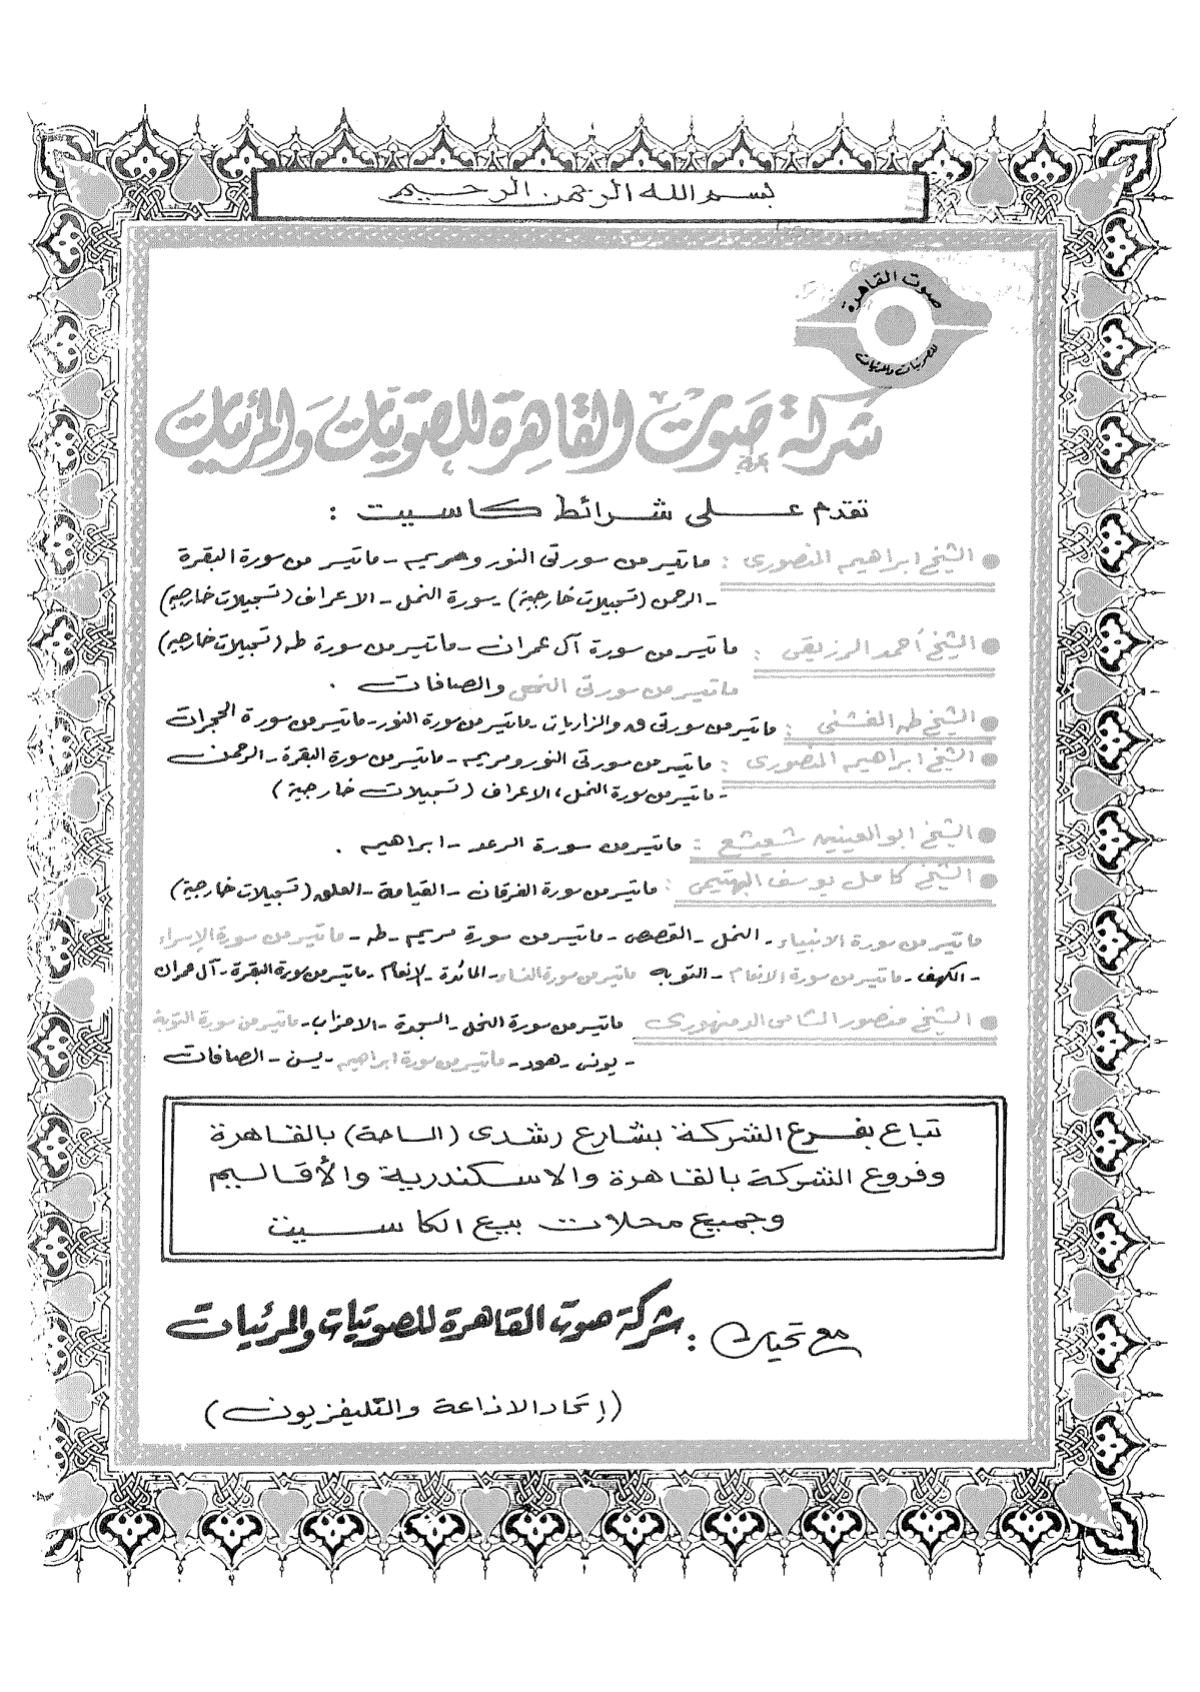 بسم الله الرحمن الرحيم
صوت القاهرة
للصوتيات والمرئيات
شركة صوت القاهرة للصوتيات والمرئيات
تقدم على شرائط كاسيت :
● الشيخ ابراهيم المنصورى : ماتيسر من سورتى النور ومريم - ماتيسر من سورة البقرة
- الرحمن (تسجيلات خارجية) - سورة النمل - الاعراف (تسجيلات خارجية)
● الشيخ أحمد الرزيقى : ماتيسر من سورة آل عمران - ماتيسر من سورة طه (تسجيلات خارجية)
ماتيسر من سورتى والصافات .
● الشيخ طه الفشنى : ماتيسر من سورتى ق والزاريات - ماتيسر من سورة النور - ماتيسر من سورة الحجرات
● الشيخ ابراهيم المنصورى : ماتيسر من سورتى النور ومريم - ماتيسر من سورة البقرة - الرحمن
- ماتيسر من سورة النمل، الاعراف (تسجيلات خارجية)
● الشيخ ابو العينين شعيشع : ماتيسر من سورة الرعد - ابراهيم .
● الشيخ كامل يوسف البهتيمى : ماتيسر من سورة الفرقان - القيامة - العلق (تسجيلات خارجية)
ماتيسر من سورة الانبياء - النمل - القصص - ماتيسر من سورة مريم - طه - ماتيسر من سورة الإسراء
- الكهف - ماتيسر من سورة الانعام - التوبه ماتيسر من سورة النساء - المائدة - الانعام - ماتيسر من سورة البقرة - آل عمران
● الشيخ منصور الشامى الدمنهورى : ماتيسر من سورة النحل - السجدة - الاحزاب - ماتيسر من سورة التوبة
- يونس - هود - ماتيسر من سورة ابراهيم - يس - الصافات
تباع بفرع الشركة بشارع رشدى (الساحة) بالقاهرة
وفروع الشركة بالقاهرة والاسكندرية والأقاليم
وجميع محلات بيع الكاسيت
مع تحيات : شركة صوت القاهرة للصوتيات والمرئيات
(إتحاد الاذاعة والتليفزيون)